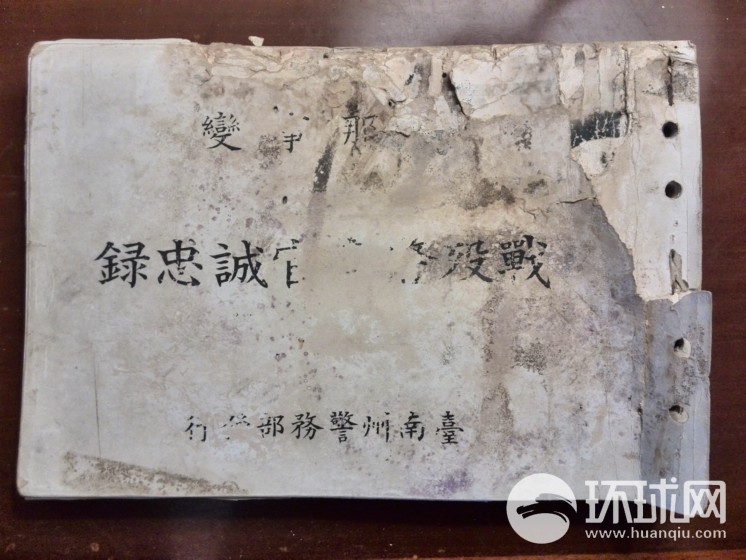 那事變
戰歿官誠忠録
臺南州警務部發行
环球网
www.huanqiu.com